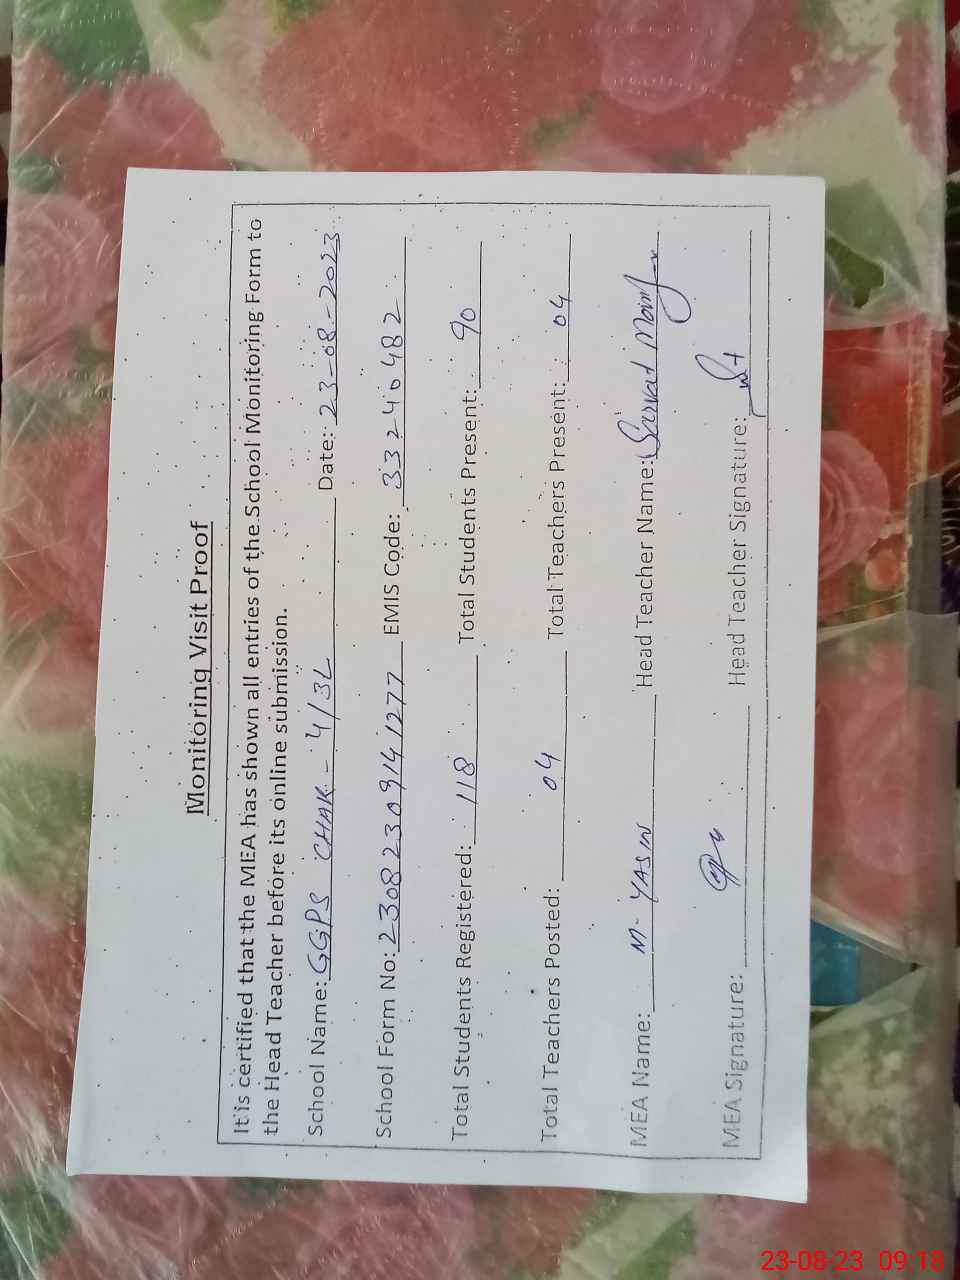 Monitoring Visit Proof
It is certified that the MEA has shown all entries of the School Monitoring Form to
the Head Teacher before its online submission.
School Name: GGPS CHAK - 4/3L Date: 23-08-2023
School Form No: 23082309141277 EMIS Code: 33240482
Total Students Registered: 118 Total Students Present: 90
Total Teachers Posted: 04 Total Teachers Present: 04
MEA Name: M- YASIN Head Teacher Name: Sarwat
MEA Signature: Head Teacher Signature:
23-08-23 09:18